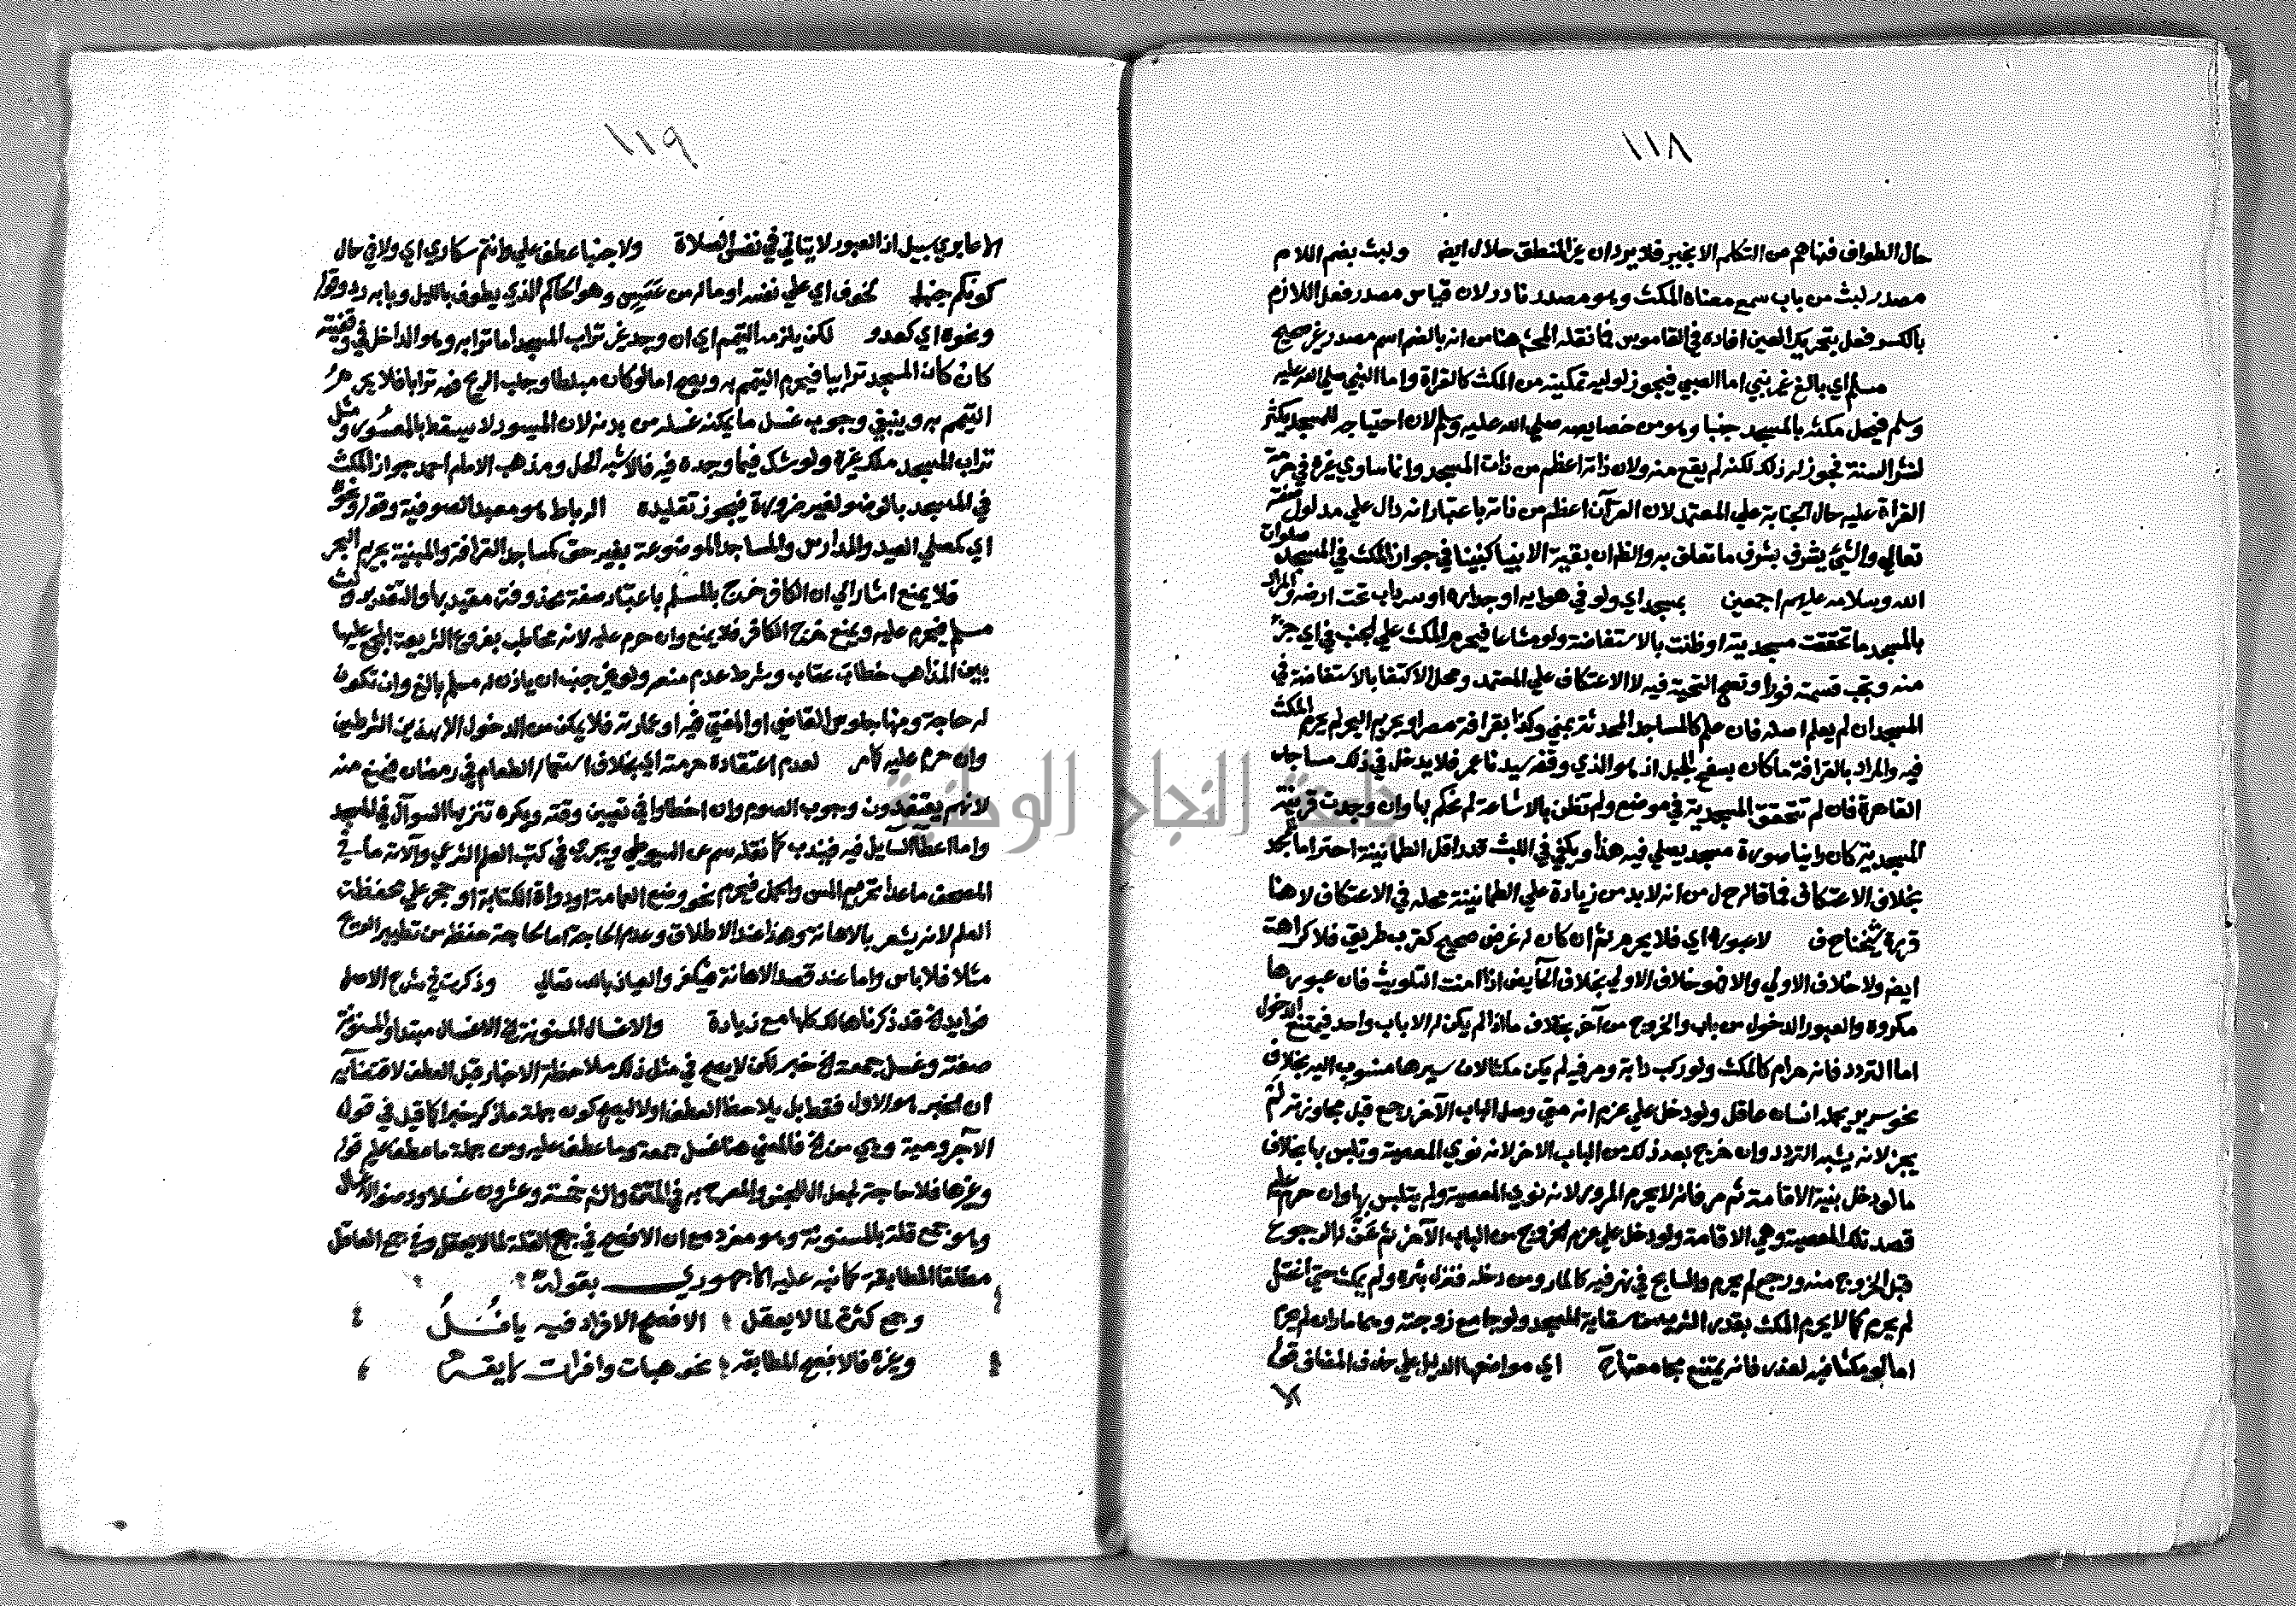 ١١٨
حال الطواف فنهاهم من التكلم الا بخير فلا يرد ان غير المنطق حلال ايض ولبث بضم اللام
مصدر لبث من باب سمع معناه المكث وهو مصدر نادر لان قياس مصدر فعل اللازم
بالكسر فعل بتحريك العين افاده في القاموس فما نقله المحشي هنا من انه بالضم اسم مصدر غير صحيح
مسلم اي بالغ غير نبي اما الصبي فيجوز لوليه تمكينه من المكث كالقراة واما النبي صلي الله عليه
وسلم فيحل مكثه بالمسجد جنبا وهو من خصايصه صلي الله عليه وسلم لان احتياجه للمسجد يكثر
لنشر السنة فجوز له ذلك لكنه لم يقع منه ولان ذاته اعظم من ذات المسجد وانما ساوي غيره في حرمة
القراة عليه حال الجنابة علي المعتمد لان القرآن اعظم من ذاته باعتبار انه دال علي مدلول صفته
تعالي والشئ يشرف بشرف ما تعلق به والظ ان بقية الانبيا كنبينا في جواز المكث في المسجد صلوات
الله وسلامه عليهم اجمعين بمسجد اي ولو في هوايه او جداره او سرداب تحت ارضه والمراد
بالمسجد ما تحققت مسجديته او ظنت بالاستفاضة ولو مشاعا فيحرم المكث علي الجنب في اي جزء
منه وتجب قسمته فورا وتصح التحية فيه لا الاعتكاف علي المعتمد ومحل الاكتفا بالاستفاضة في
المسجد ان لم يعلم اصله فان علم كالمساجد المحدثة بمني وكذا بقرافة مصر او بحريم البحر لم يحرم المكث
فيه والمراد بالقرافة ما كان بسفح الجبل اذ هو الذي وقفه سيدنا عمر فلا يدخل في ذلك مساجد
القاهرة فان لم تتحقق المسجدية في موضع ولم تظن بالاشاعة لم نحكم بها وان وجدت قرينة
المسجدية كان راينا صورة مسجد يصلي فيه هذا ويكفي في اللبث قدر اقل الطمانينة احتراما للمسجد
بخلاف الاعتكاف فما قاله ح ل من انه لا بد من زيادة علي الطمانينة محله في الاعتكاف لا هنا
قرره شيخنا ح ف لا عبوره اي فلا يحرم ثم ان كان له غرض صحيح كقرب طريق فلا كراهة
ايض ولا خلاف الاولي والا فهو خلاف الاولي بخلاف الحايض اذا امنت التلويث فان عبورها
مكروه والعبور الدخول من باب والخروج من آخر بخلاف ما اذا لم يكن له الا باب واحد فيمتنع الدخول
اما التردد فانه حرام كالمكث ولو ركب دابة ومر فيه لم يكن مكثا لان سيرها منسوب اليه بخلاف
نحو سرير يحمله انسان عاقل ولو دخل علي عزم انه متي وصل الباب الآخر رجع قبل مجاوزته لم
يجز لانه يشبه التردد وان خرج بعد ذلك من الباب الاخر لانه نوي المعصية وتلبس بها بخلاف
ما لو دخل بنية الاقامة ثم مر فانه لا يحرم المرور لانه نوي المعصية ولم يتلبس بها وان حرم عليه
قصد تلك المعصية وهي الاقامة ولو دخل علي عزم الخروج من الباب الآخر ثم عن له الرجوع
قبل الخروج منه ورجع لم يحرم والسابح في نهر فيه كالمار ومن دخله فنزل بئره ولم يمكث حتي اغتسل
لم يحرم كما لا يحرم المكث بقدر الشرب من سقاية المسجد ولو جامع زوجته وهما ماران لم يحرم
اما لو مكثا فيه لعذر فانه يمتنع مجامعتها ح اي مواضعها الدليل علي حذف المضاف قوله
الا
١١٩
الا عابري سبيل اذ العبور لا يتاتي في نفس الصلاة ولا جنبا عطف علي وانتم سكاري اي ولا في حال
كونكم جنبا لخوف اي علي نفسه او ماله من عسس وهو الحاكم الذي يطوف بالليل وبابه رد وقوله
ونحوه اي كعدو لكن يلزمه التيمم اي ان وجد غير تراب المسجد اما ترابه وهو الداخل في وقفيته
كان كان المسجد ترابيا فيحرم التيمم به ويصح اما لو كان مبلطا وجلب الريح فيه ترابا فلا يحرم
التيمم به وينبغي وجوب غسل ما يمكنه غسله من بدنه لان الميسور لا يسقط بالمعسور ومثل
تراب المسجد ملك غيره ولو شك فيما وجده فيه فالاشبه الحل ومذهب الامام احمد جواز المكث
في المسجد بالوضو لغير ضرورة فيجوز تقليده الرباط هو معبد الصوفية وقوله ونحوه
اي كمصلي العيد والمدارس والمساجد الموضوعة بغير حق كمساجد القرافة والمبنية بحريم البحر
فلا يمنع اشار الي ان الكافر خرج بالمسلم باعتبار صفة محذوفة مقيد بها والتقدير ولبث
مسلم فيحرم عليه ويمنع خرج الكافر فلا يمنع وان حرم عليه لانه مخاطب بفروع الشريعة المجمع عليها
بين المذاهب خطاب عقاب وشرط عدم منعه ولو غير جنب ان ياذن له مسلم بالغ وان تكون
له حاجة ومنها جلوس القاضي او المفتي فيه او عمارته فلا يمكن من الدخول الا بهذين الشرطين
وان حرم عليه كامر لعدم اعتقاده حرمته اي بخلاف استعمال الطعام في رمضان فيمنع منه
لانهم يعتقدون وجوب الصوم وان اخطاوا في تعيين وقته ويكره تنزيها السوآل في المسجد
واما اعطآ السايل فيه فيندب كما نقله سم عن السيوطي ويجري في كتب العلم الشرعي وآلاته ما في
المصحف ما عدا تحريم المس والحمل فيحرم نحو وضع العمامة او دواة الكتابة او حجر علي محفظة
العلم لانه يشعر بالاهانة وهذا عند الاطلاق وعدم الحاجة اما لحاجة حفظه من تطيير الريح
مثلا فلا باس واما عند قصد الاهانة فيكفر والعياذ بالله تعالي وذكرت في شرح الاصل
فوايد الخ قد ذكرناها لك كلها مع زيادة والاغسال المسنونة الخ الاغسال مبتدا والمسنونة
صفته وغسل جمعة الخ خبر لكن لا يصح في مثل ذلك ملاحظة الاخبار قبل العطف لاقتضآيه
ان الخبر هو الاول فقط بل يلاحظ العطف اولا ليصح كون جملة ما ذكر خبرا كما قيل في قول
الآجرومية وهي من الخ فالمعني هنا غسل جمعة وما عطف عليه ومن جملة ما عطف عليه قوله
وغيرها فلا حاجة لجعل ال للجنس والمصرح به في المتن والشرح خمسة وعشرون غسلا ووصف الاغسال
وهو جمع قلة بالمسنونة وهو مفرد مع ان الافصح في جمع القلة لما لا يعقل وفي جمع العاقل
مطلقا المطابقة كما نبه عليه الاجهوري بقوله
وجمع كثرة لما لا يعقل الافصح الافراد فيه يا فُلُ
وغيره فالافصح المطابقه نحو هبات وافرات لايقه